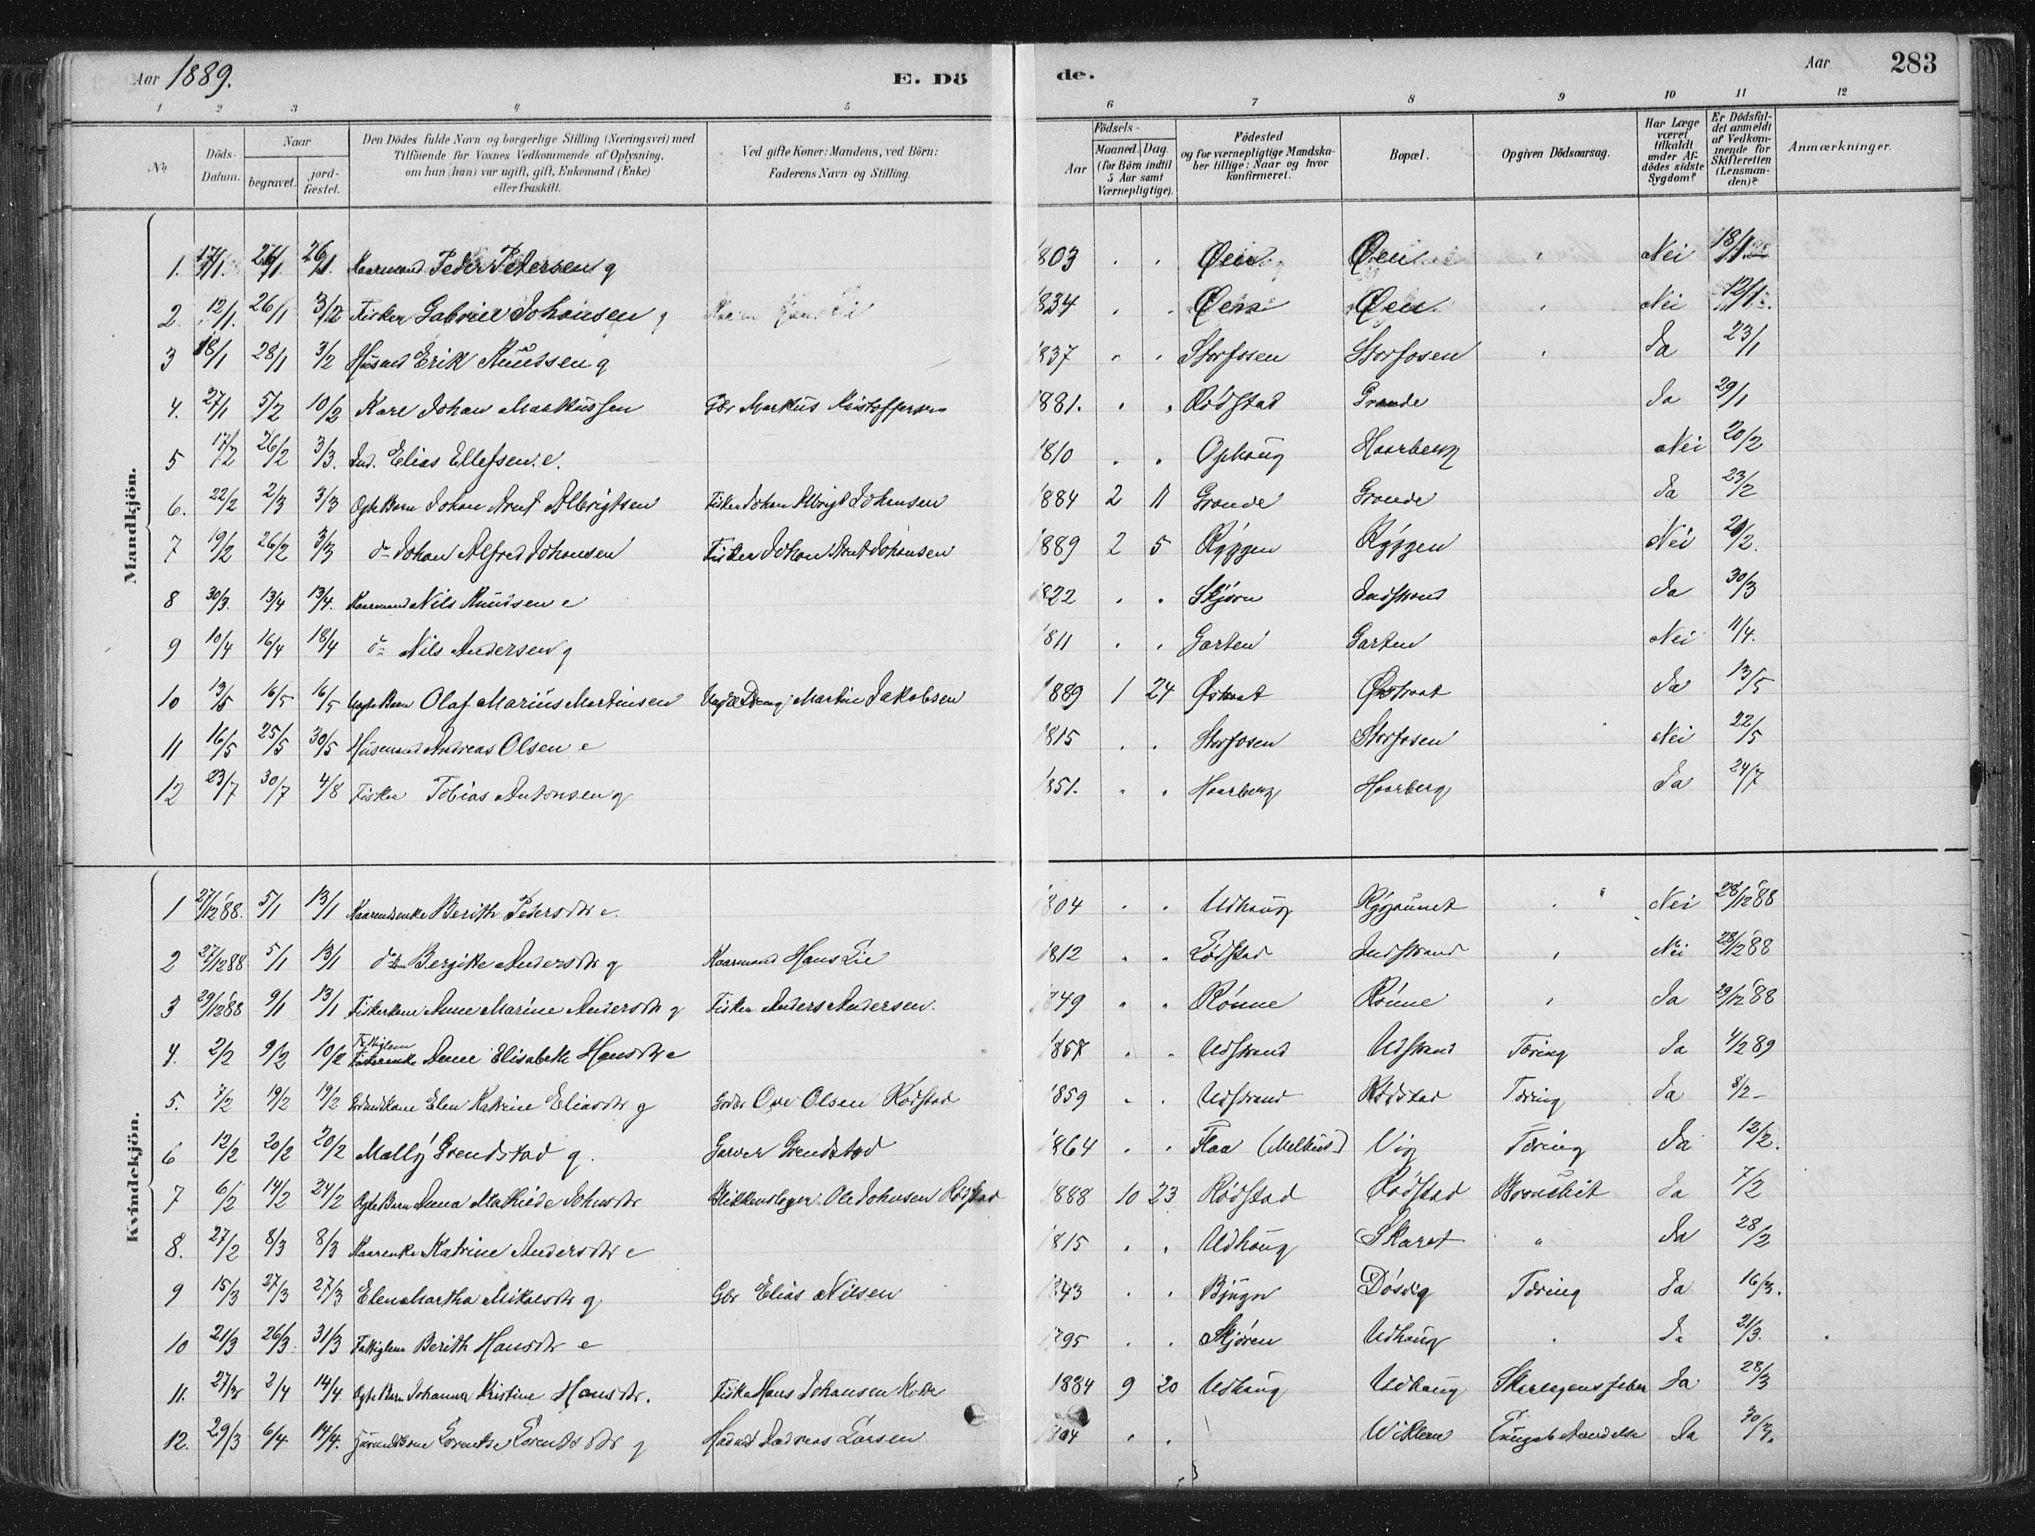 Aar 1889. E. Dö de. Aar 283
1 2 3 4 5 6 7 8 9 10 11 12
No. Döds-Datum. Naar begravet. jord-fæstet. Den Dödes fulde Navn og borgerlige Stilling (Næringsvei) med Tilföiende for Voxnes Vedkommende af Oplysning, om han (hun) var ugift, gift, Enkemand (Enke) eller fraskilt. Ved gifte Koner: Mandens, ved Börn: Faderens Navn og Stilling. Födsels- Aar Maaned. Dag. (for Börn indtil 5 Aar samt Værnepligtige). Födested og for værnepligtige Mandskaber tillige: Naar og hvor konfirmeret. Bopæl. Opgiven Dödsaarsag. Har Læge været tilkaldt under Afdödes sidste Sygdom? Er Dödsfaldet anmeldt af Vedkommende for Skifteretten (Lensmanden)? Anmærkninger.
Mandkjön.
1. 17/1 26/1 26/1 Kaarmand Peder Pedersen g 1803 " " Øen Øen " Nei 18/1
2. 12/1 26/1 3/2 Fisker Gabriel Johansen g 1834 " " Øen Øen " Nei 12/1
3 18/1 28/1 3/2 Husmd Erik Knudsen g 1837 " " Storfosen Storfosen " Ja 23/1
4. 27/1 5/2 10/2 Karl Johan Markussen Gbr Markus Kristoffersen 1881. " " Rødstad Grande Ja 29/1
5 17/2 26/2 3/3. Ind. Elias Ellefsen e. 1810 " " Ophaug Haarberg Nei 20/2
6. 22/2 2/3 3/3 Ægte Barn Johan Arnt Albrigtsen Fisker Johan Albrigt Johansen 1884 2 11 Grande Grande Ja 23/2
7 19/2 26/2 3/3 do Johan Alfred Johansen Fisker Johan Arnt Johansen 1889 2 5 Ryggen Ryggen Nei 20/2.
8 30/3. 13/4 13/4. Kaarmand Nils Knudsen e 1822 " " Skjørn Indstrand Ja 30/3
9 10/4 16/4 18/4 do Nils Andersen g 1811 " " Garten Garten Nei 11/4.
10 13/5 16/5 16/5 Uægte Barn Olaf Marius Martinsen Ungdom Martin Jakobsen 1889 1 24 Østraat Østraat Ja 13/5
11 16/5 25/5 30/5 Husmand Andreas Olsen e 1815 " " Storfosen Storfosen Nei 22/5
12 23/7 30/7 4/8 Fisker Tobias Antonsen g 1851. " " Haarberg Haarberg Ja 24/7
Kvindekjön.
1 27/12 88. 5/1 13/1 Kaarenke Berith Pedersdtr e. 1804 " " Udhaug Ryggaunet " Nei 28/12 88
2 27/12 88 5/1 13/1 do Bergitte Andersdtr g Kaarmand Hans Lie 1812 " " Lødstad Indstrand " Nei 28/12 88
3 29/12 88 9/1 13/1 Fiskerkone Anne Marine Andersdtr g Fisker Anders Andersen. 1849 " " Rønne Rønne " Ja 29/12 88
4. 2/2 9/2 10/2 Fattiglem Anne Elisabeth Hansdtr e 1857 " " Udstrand Udstrand Tæring Ja 4/2 89
5. 7/2 19/2 19/2 Gdmdkone Elen Katrine Eliasdtr g Gdbr Ove Olsen Rødstad 1859 " " Udstrand Rødstad Tæring Ja 8/2 -
6 12/2 20/2 20/2 Mally Grendstad g. Garver Grendstad 1864 " " Flaa (Melhus) Vig Tæring Ja 12/2.
7 6/2 14/2 24/2 Ægte Barn Anna Mathilde Johnsdtr Blikkenslager Ole Johnsen Rødstad 1888 10 23 Rødstad Rødstad Bronchit Ja 7/2
8. 27/2 8/3 8/3 Kaarenke Katrine Andersdtr e 1815 " " Udhaug Skaret " Ja 28/2
9 15/3 27/3 27/3 Elen Martha Mikalsdtr g Gbr Elias Nilsen 1843 " " Bjugn Døsvig Tæring Ja 16/3.
10 21/3 26/3 31/3 Fattiglem Berith Hansdtr e 1795 " " Skjøren Udhaug " Ja 21/3.
11. 27/3 2/4 14/4 Ægte Barn Johanna Kristine Hansdtr. Fisker Hans Johansen 1884 9 20 Udhaug Udhaug Skarlagensfeber Ja 28/3
12. 29/3 6/4 14/4. Lorentse Lorentsdtr g Husmd Andreas Larsen " " Ja 30/3.